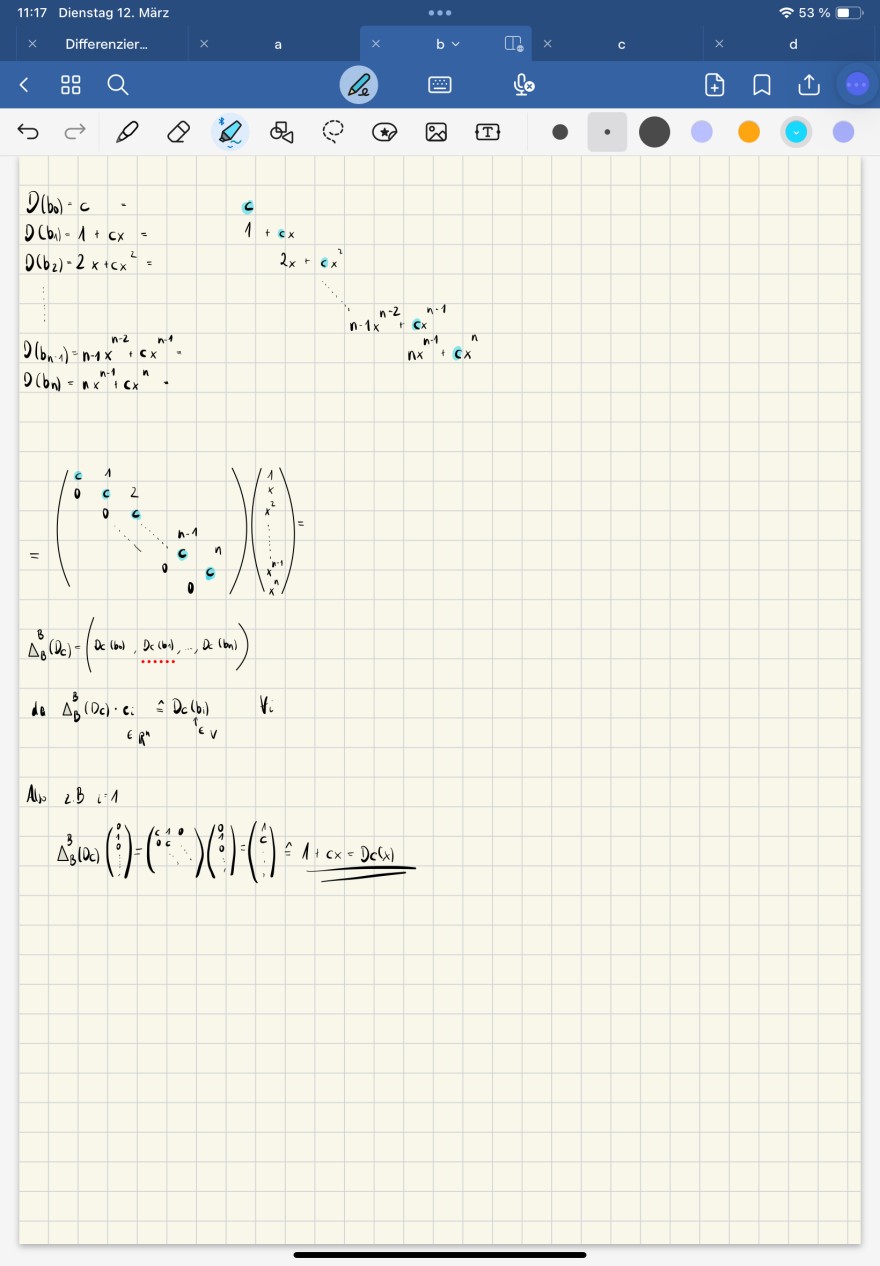 11:17 Dienstag 12. März 53 %
Differenzier... a b c d
D(b₀) = c = c
D(b₁) = 1 + cx = 1 + cx
D(b₂) = 2x + cx² = 2x + cx²
n-1x^{n-2} + cx^{n-1}
D(b_{n-1}) = n-1x^{n-2} + cx^{n-1} =
nx^{n-1} + cx^n
D(b_n) = nx^{n-1} + cx^n =
c 1 1
0 c 2 x
0 c x²
n-1
= c n =
0 c x^{n-1}
0 x^n
Δ_B^B (Dc) = ( Dc (b₀) , Dc (b₁) , ..., Dc (bn) )
da Δ_B^B (Dc) · ei ≙ Dc (bi) ∀i
∈ ℝⁿ ↑ ∈ V
Also z.B i=1
Δ_B^B (Dc) (0 1 0 ⋮) = (c 1 0 0 c ⋱) (0 1 0 ⋮) = (1 c ⋮) ≙ 1 + cx = Dc(x)